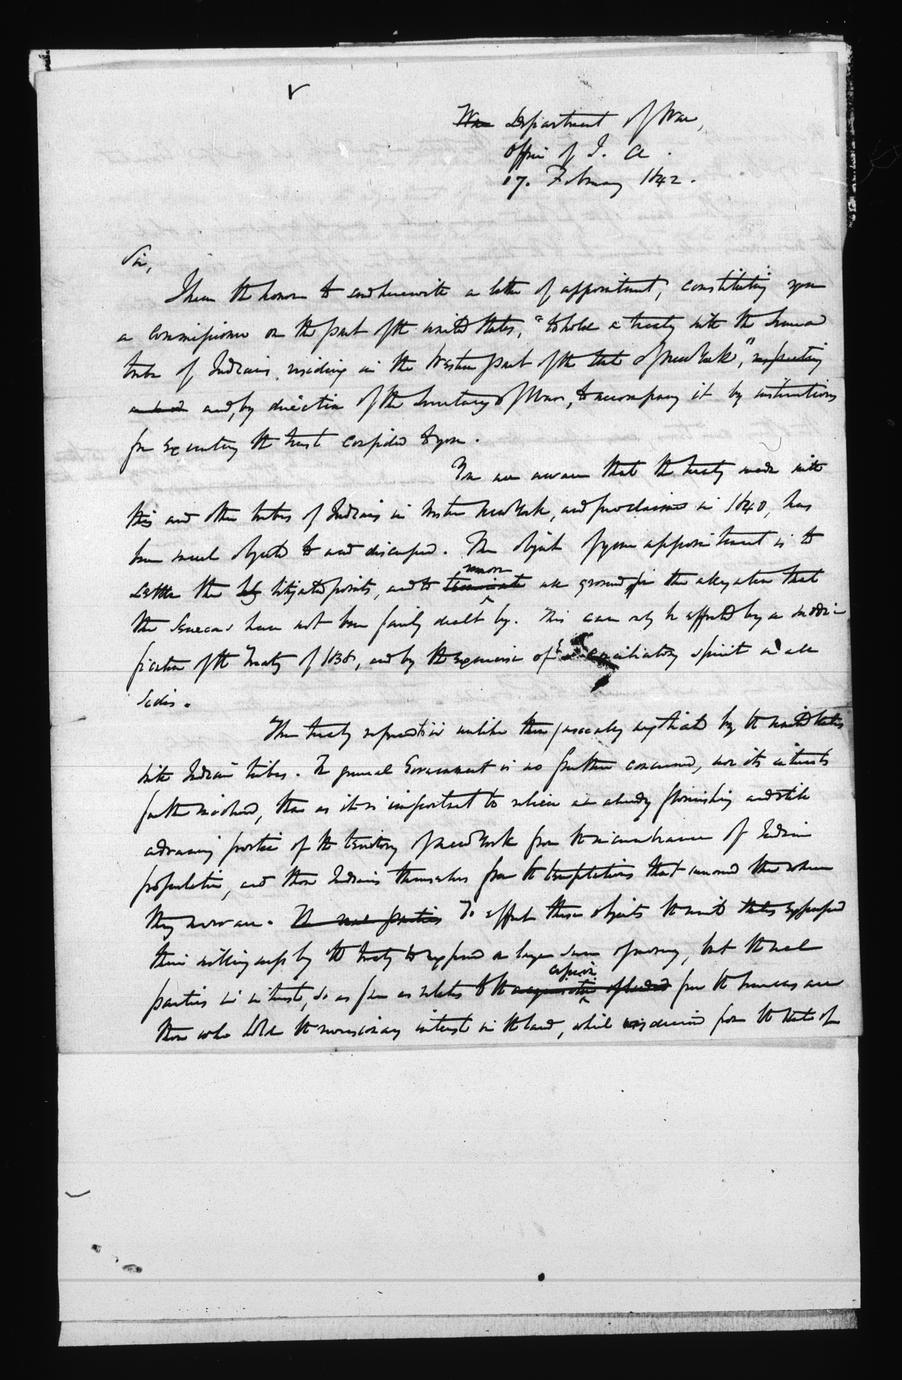 War Department of War,
Office of I. A.
17. February 1842.
Sir,
I have the honor to send herewith a letter of appointment, constituting you
a Commissioner on the part of the United States, "to hold a treaty with the Seneca
tribe of Indians residing in the Western part of the State of New York", respecting
and, by direction of the Secretary of War, to accompany it by instructions
for executing the trust confided to you.
You are aware that the treaty made with
this and other tribes of Indians in Western New York, and proclaimed in 1840, has
been much objected to and discussed. The object of your appointment is to
remove
settle the litigated points, and to terminate all ground for the allegation that
the Senecas have not been fairly dealt by. This can only be effected by a modi-
fication of the Treaty of 1838, and by the exercise of a conciliatory spirit on all
sides.
This treaty is unlike those usually negotiated by the United States
with Indian tribes. The general Government is no further concerned, nor its interests
further involved, than as it is important to relieve an already flourishing and still
advancing portion of the territory of New York from the incumbrance of Indian
population, and those Indians themselves from the temptations that surround them where
they now are. The real parties To effect these objects the United States expressed
their willingness by the treaty to expend a large sum of money, but the real
parties in interest, so as far as relates to the acquisition of land from the Senecas are
those who hold the reversionary interest in the land, while derived from the State of